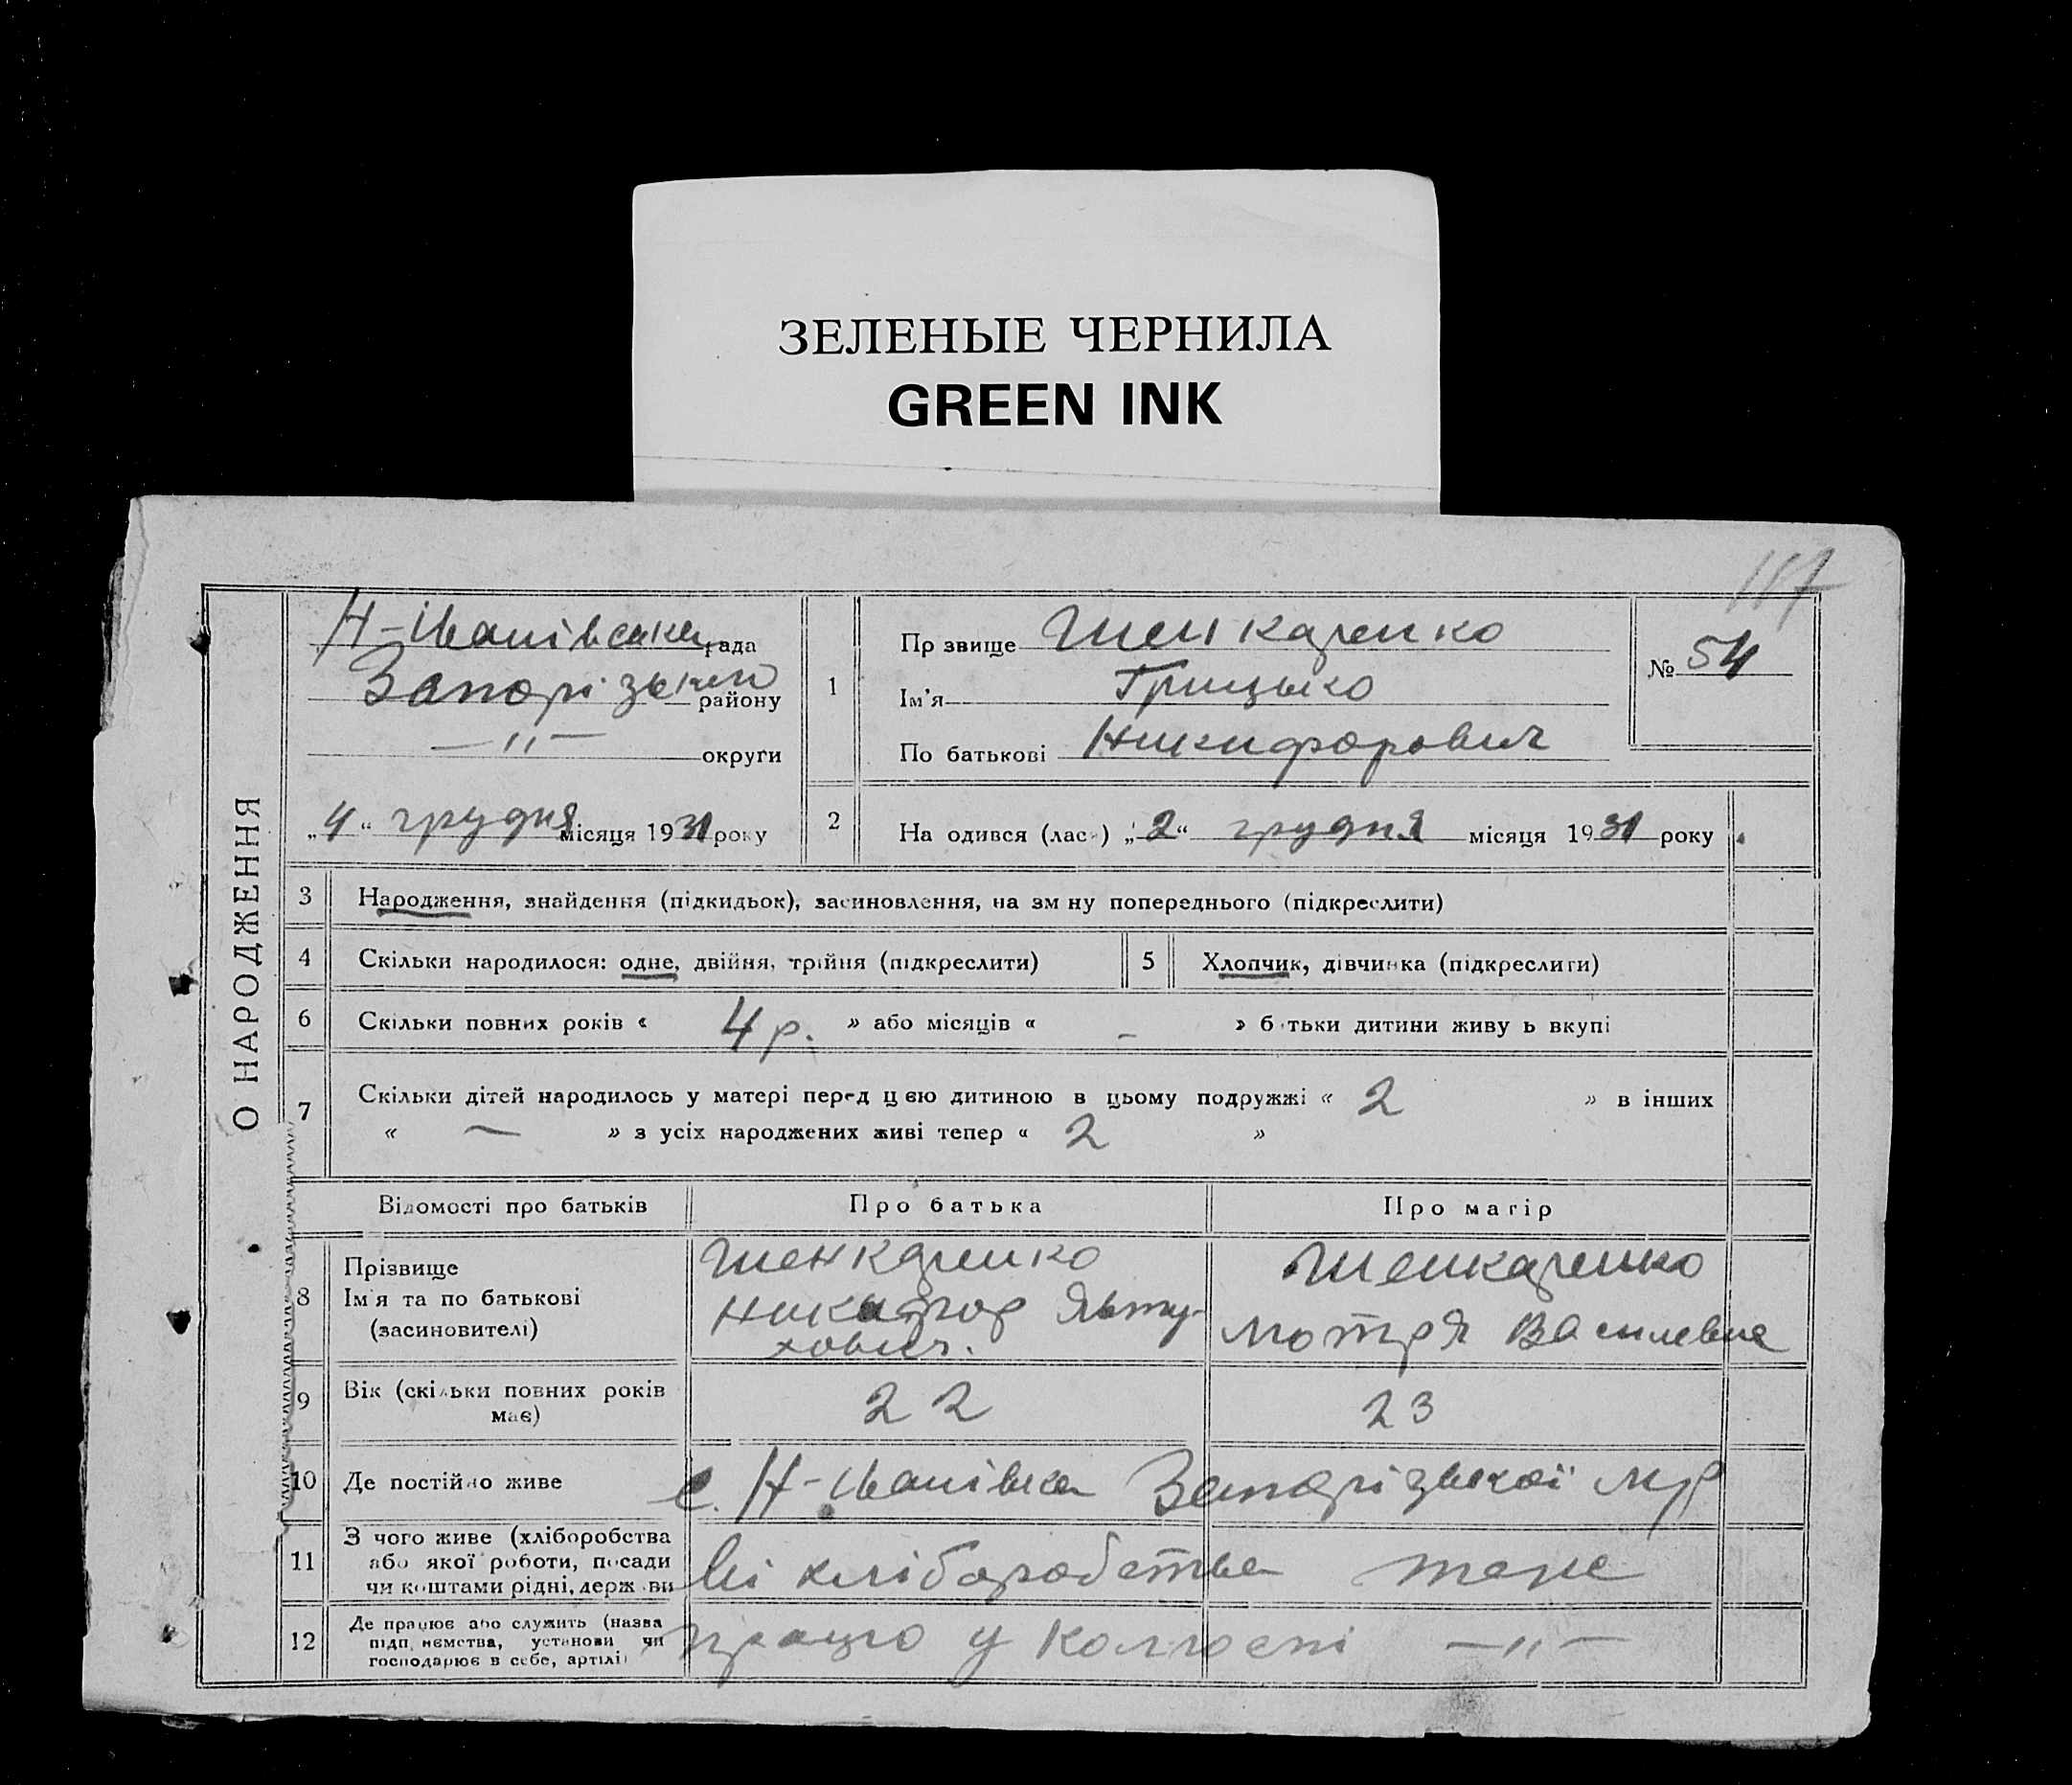 ЗЕЛЕНЫЕ ЧЕРНИЛА
GREEN INK
117
О НАРОДЖЕННЯ
Н-Іванівська рада
Запорізького району
—„— округи
„4“ грудня місяця 1931 року
1
Пр звище Шенкаренко
Ім'я Грицько
По батькові Никифорович
№ 54
2 На одився (лась) „2“ грудня місяця 1931 року
3 Народження, знайдення (підкидьок), засиновлення, на зм ну попереднього (підкреслити)
4 Скільки народилося: одне, двійня, трійня (підкреслити) 5 Хлопчик, дівчинка (підкреслити)
6 Скільки повних років « 4 р. » або місяців « - » б тьки дитини живу ь вкупі
7 Скільки дітей народилось у матері перед цією дитиною в цьому подружжі « 2 » в інших
« — » з усіх народжених живі тепер « 2 »
Відомості про батьків Про батька Про матір
8 Прізвище
Ім'я та по батькові
(засиновителі)
Шенкаренко
Никифор Явту-
хович.
Шенкаренко
Мотря Василевна
9 Вік (скільки повних років
має)
22 23
10 Де постійно живе с. Н-Іванівка Запорізької М/Р
11 З чого живе (хліборобства
або якої роботи, посади
чи коштами рідні, держ ви
хліборобства теже
12 Де працює або служить (назва
підп иємства, установи чи
господарює в себе, артілі)
працю у колгоспі —„—